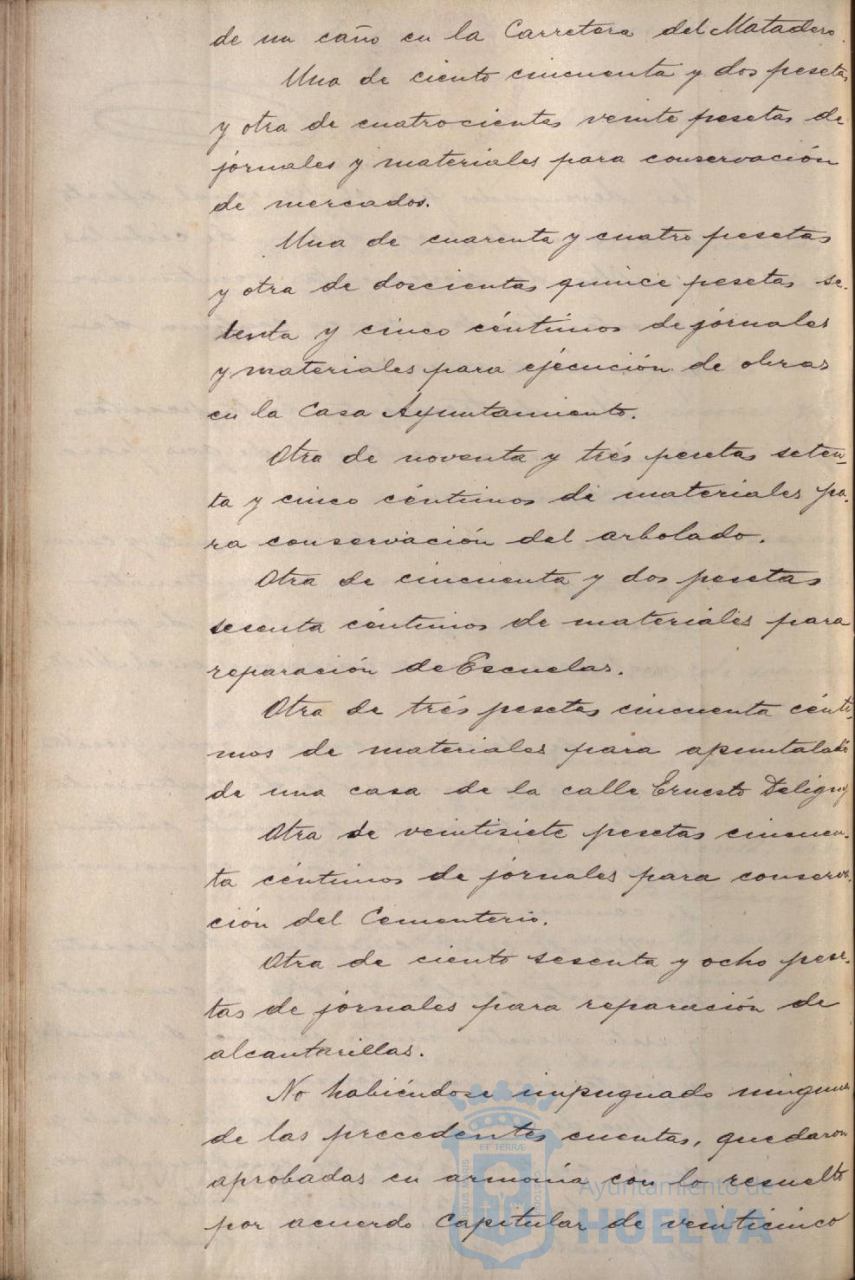 de un caño en la Carretera del Matadero.
Una de ciento cincuenta y dos pesetas
y otra de cuatrocientas veinte pesetas de
jornales y materiales para conservación
de mercados.
Una de cuarenta y cuatro pesetas
y otra de doscientas quince pesetas se-
tenta y cinco céntimos de jornales
y materiales para ejecución de obras
en la Casa Ayuntamiento.
Otra de noventa y trés pesetas seten-
ta y cinco céntimos de materiales pa-
ra conservación del arbolado.
Otra de cincuenta y dos pesetas
sesenta céntimos de materiales para
reparación de Escuelas.
Otra de trés pesetas cincuenta cénti-
mos de materiales para apuntalado
de una casa de la calle Ernesto Deligny
Otra de veintisiete pesetas cincuen-
ta céntimos de jornales para conserva-
ción del Cementerio.
Otra de ciento sesenta y ocho pese-
tas de jornales para reparación de
alcantarillas.
No habiéndose impugnado ninguna
de las precedentes cuentas, quedaron
aprobadas en armonía con lo resuelto
por acuerdo Capitular de veinticinco
ET TERRÆ
Ayuntamiento de
HUELVA